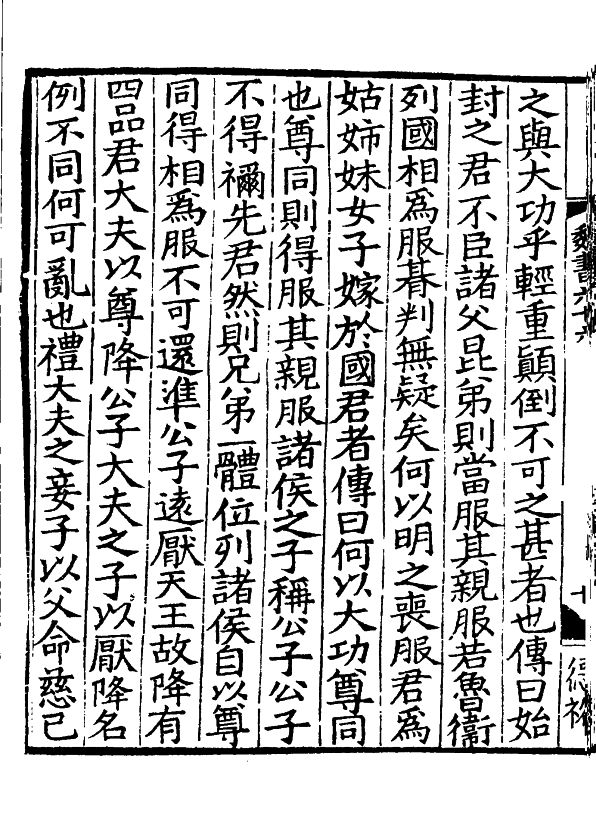 之與大功乎輕重顛倒不可之甚者也傳曰始
封之君不臣諸父昆弟則當服其親服若魯衞
列國相爲服朞判無疑矣何以明之喪服君爲
姑姊妹女子嫁於國君者傳曰何以大功尊同
也尊同則得服其親服諸侯之子稱公子公子
不得禰先君然則兄弟一體位列諸侯自以尊
同得相爲服不可還準公子遠厭天王故降有
四品君大夫以尊降公子大夫之子以厭降名
例不同何可亂也禮大夫之妾子以父命慈己